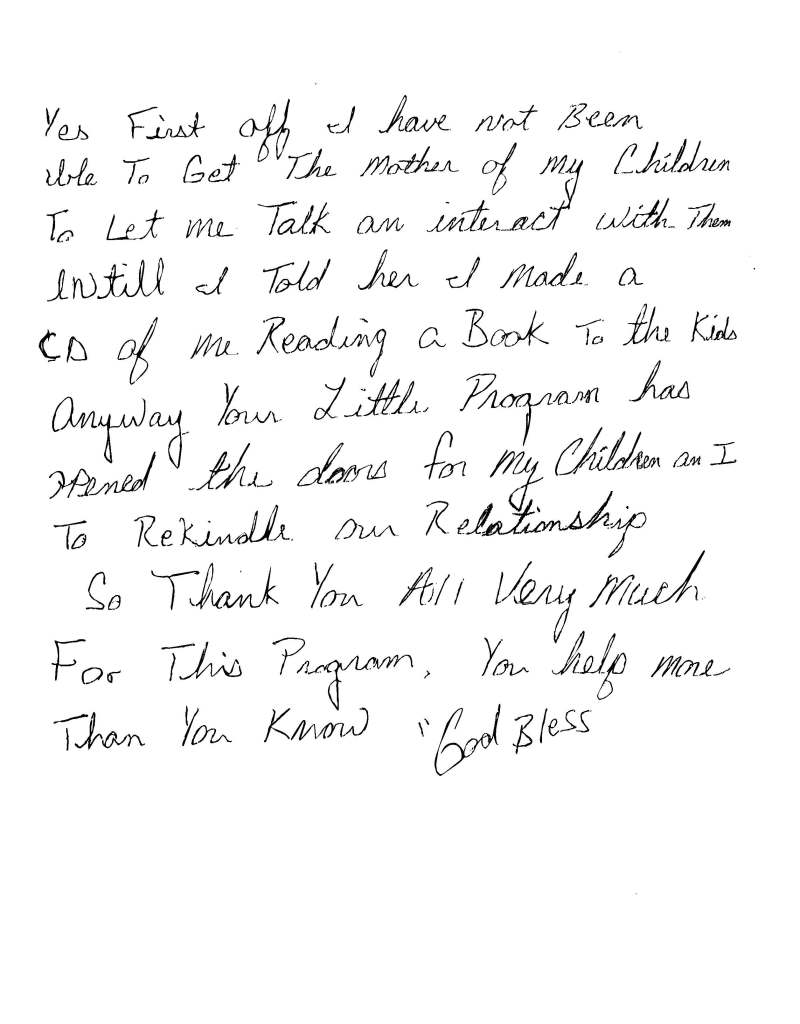 Yes First off I have not Been
able To Get The Mother of my Children
To Let me Talk an interact with Them
INtill I Told her I Made a
CD of me Reading a Book To the Kids
Anyway Your Little Program has
opened the doors for my Children an I
To Rekindle our Relationship
So Thank You All Very Much
For This Program, You help more
Than You Know "God Bless